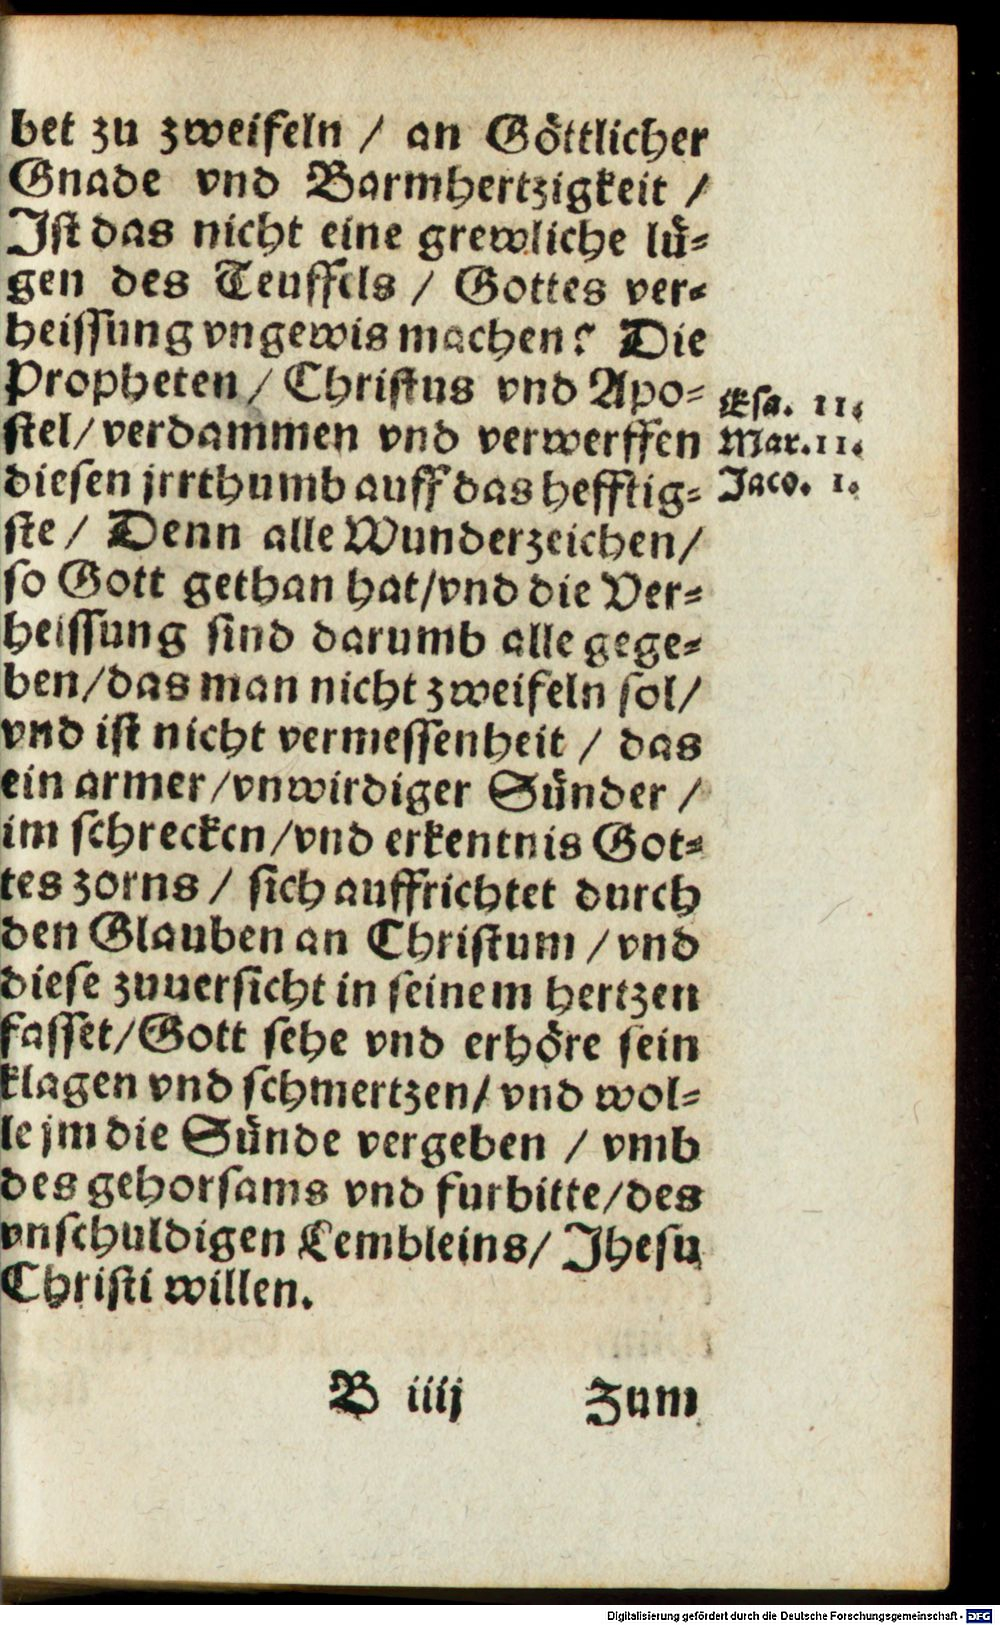 bet zu zweifeln / an Göttlicher
Gnade vnd Barmhertzigkeit /
Ist das nicht eine grewliche lü-
gen des Teuffels / Gottes ver-
heissung vngewis machen? Die
Propheten / Christus vnd Apo-
stel / verdammen vnd verwerffen
diesen jrrthumb auff das hefftig-
ste / Denn alle Wunderzeichen /
so Gott gethan hat / vnd die Ver-
heissung sind darumb alle gege-
ben / das man nicht zweifeln sol /
vnd ist nicht vermessenheit / das
ein armer / vnwirdiger Sünder /
im schrecken / vnd erkentnis Got-
tes zorns / sich auffrichtet durch
den Glauben an Christum / vnd
diese zuuersicht in seinem hertzen
fasset / Gott sehe vnd erhöre sein
klagen vnd schmertzen / vnd wol-
le jm die Sünde vergeben / vmb
des gehorsams vnd furbitte / des
vnschuldigen Lembleins / Jhesu
Christi willen.
Esa. 11.
Mar. 11.
Jaco. 1.
B iiij Zum
Digitalisierung gefördert durch die Deutsche Forschungsgemeinschaft - DFG